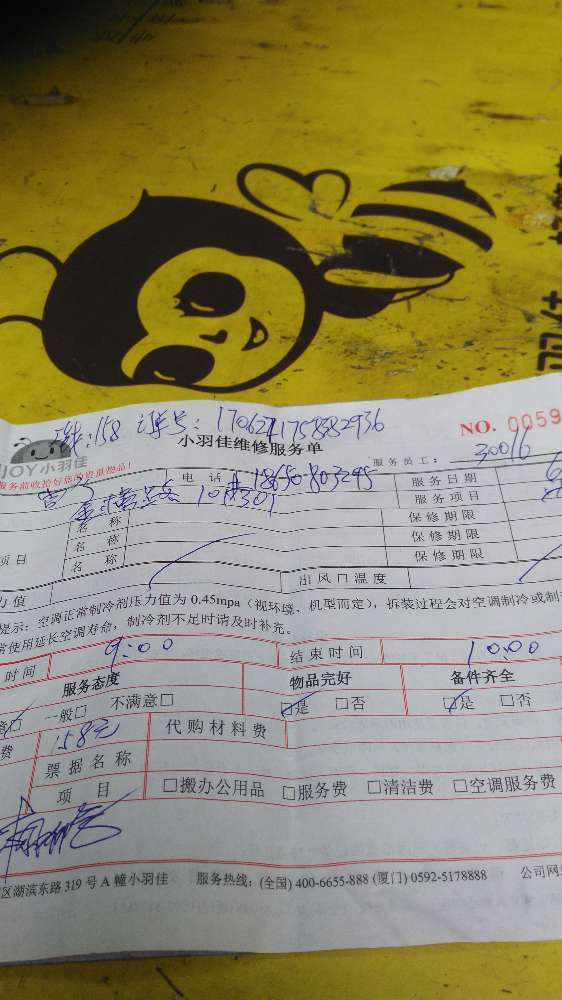 158 订单号: 170624175882936
NO. 0059
JOY小羽佳
小羽佳维修服务单
服务前收拾好您的贵重物品!
服务员工: 30016
电话 18650803295
服务日期
10#301
服务项目
名称
保修期限
项目
名称
保修期限
名称
保修期限
力值
出风口温度
提示: 空调正常制冷剂压力值为 0.45mpa (视环境、机型而定), 拆装过程会对空调制冷或制
常使用延长空调寿命, 制冷剂不足时请及时补充。
时间 9:00 结束时间 10:00
服务态度 物品完好 备件齐全
意□ 一般□ 不满意□ □是 □否 □是 □否
费 158元 代购材料费
票据名称
项目 □搬办公用品 □服务费 □清洁费 □空调服务费
区湖滨东路 319 号 A 幢小羽佳 服务热线: (全国) 400-6655-888 (厦门) 0592-5178888 公司网